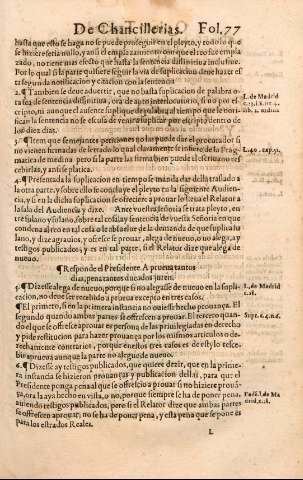 De Chancillerias. Fol. 77
hasta que esto se haga no se puede proseguir en el pleyto, y todo lo que
se hiziere seria nullo, y assi el emplazamiento con que el reo fue empla
zado, no tiene mas efecto que hasta la sentencia diffinitiua inclusiue.
Por lo qual si la parte quisiere seguir la via de suplicacion deue hazer es
ta segunda notificacion y citacion con la sentencia
2 ¶Tambien se deue aduertir, que no basta suplicacion de palabra o
ra sea de sentencia diffinitiua, ora de auto interlocutorio, si no por es
cripto, ni aunque el ausente suplique de palabra al tiempo que le noti
fican la sentencia no se escusa de venir a suplicar por escripto dentro de
los diez dias.
L. de Madrid
3 ¶Item que semejantes peticiones no las puede dar el procurador si
no vienen firmadas de letrado
matica de medina pero si la parte la firma bien puede el escriuano res
cebirlas, y ansi se platica.
4 ¶Presentada la suplicacion en tiempo se manda dar della traslado a
la otra parte, y sobre ello se concluye el pleyto en la siguiente Audien
cia, y si en la dicha suplicacion se offreciere a prouar lo lleua el Relator a
la sala del Audiencia y dize. Ante vuestra señoria se trata pleyto, en
tre fulano y fulano, sobre tal cosa ay sentencia de vuestra Señoria en que
condena al reo en tal cosa o le absuelue de la demanda de que suplica fu
lano, y dize agrauios, y ofrescese a prouar, alega de nueuo, o no alega, ay
testigos publicados y es en tal parte, si el Relator dize que alega de
nueuo.
¶Responde el Presidente A prueua tantos
dias, pena tantos ducados juren.
5 ¶Dizesse alega de nueuo, porque si no alegasse de nueuo en la supli
cacion, no deue ser recebido a prueua excepto en tres casos.
L. de Madrid
c. 18.
El primero, si en la primera instancia no ouiesse hecho prouança. El
segundo quando ambas partes se offrescen a prouar. El tercero quan
do el que se offresce a prouar es persona de las priuilegiadas en derecho
y pide restitucion para hazer prouança por los mismos articulos o de
rechamente contrarios, porque en estos tres casos es de estylo resce
birse a prueua aunque la parte no alegue de nueuo.
6 ¶Dizesse ay testigos publicados, que quiere dezir, que en la prime
ra instancia se hizieron prouanças y publicacion dellas, para que el
Presidente ponga pena al que se offresciò a prouar si no hiziere proua
ça, ora la aya hecho en vista, o no, porque siempre se ha de poner pena,
auiendo testigos publicados, pero si el Relator dize que ambas partes
se offrescen a prouar, no se ha de poner pena, y esta pena que se pone es
para los estrados Reales.
L